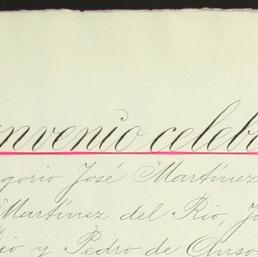 onvenio celeb
gorio José Martínez
Martínez del Rio, J
Rio y Pedro de Anso